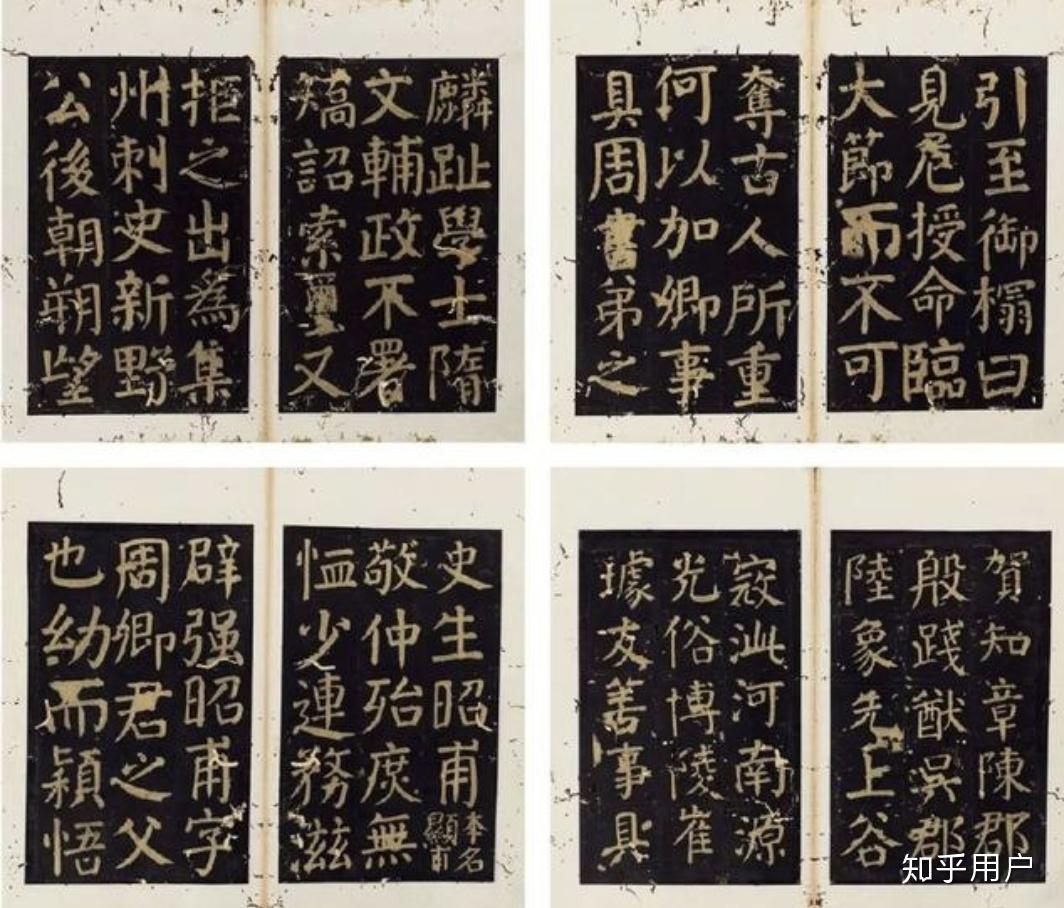 麟趾學士隋
文輔政不署
矯詔索璽又
拒之出爲集
州刺史新野
公後朝朔望
引至御榻曰
見危授命臨
大節而不可
奪古人所重
何以加卿事
具周書弟之
史生昭甫本名顯甫
敬仲殆庶無
恤少連務滋
辟强昭甫字
周卿君之父
也幼而穎悟
賀知章陳郡
殷踐猷吳郡
陸象先上谷
寇泚河南源
光俗博陵崔
璩友善事具
知乎用户